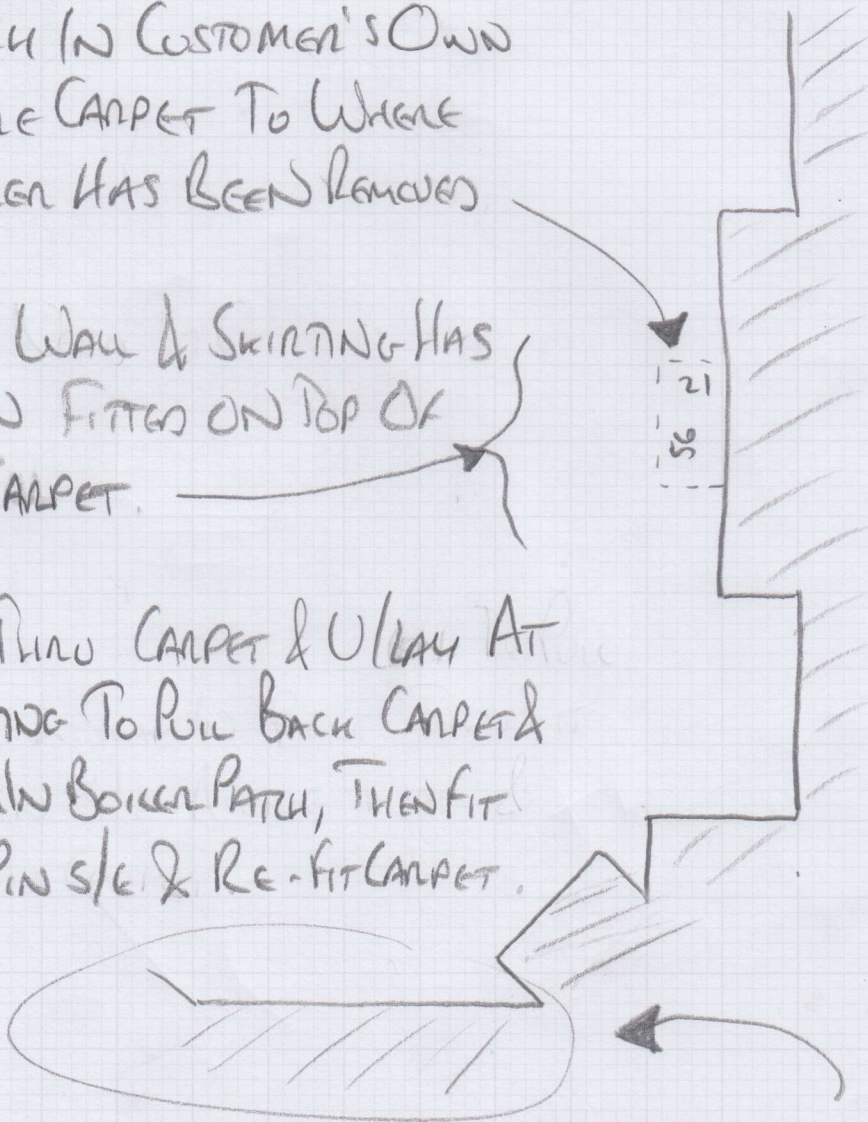 H IN CUSTOMER'S OWN
RE CARPET TO WHERE
ER HAS BEEN REMOVED
WALL & SKIRTING HAS
N FITTED ON TOP OF
CARPET.
21
56
THRU CARPET & U/LAY AT
ING TO PULL BACK CARPET &
IN BOILER PATCH, THEN FIT
PIN S/E & RE-FIT CARPET.